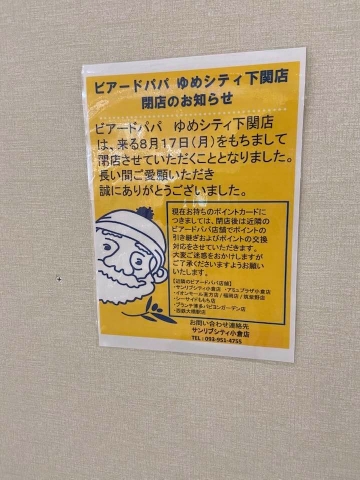 ビアードパパ ゆめシティ下関店
閉店のお知らせ
ビアードパパ ゆめシティ下関店
は、来る8月17日(月)をもちまして
閉店させていただくこととなりました。
長い間ご愛顧いただき
誠にありがとうございました。
現在お持ちのポイントカードに
つきましては、閉店後は近隣の
ビアードパパ店舗でポイントの
引き継ぎおよびポイントの交換
対応をさせていただきます。
大変ご迷惑をおかけしますが
ご了承くださいますようお願い
いたします。
【近隣のビアードパパ店舗】
・サンリブシティ小倉店 ・アミュプラザ小倉店
・イオンモール直方店/福岡店/筑紫野店
・シーサイドももち店
・ブランチ博多パピヨンガーデン店
・西鉄大橋駅店
お問い合わせ連絡先
サンリブシティ小倉店
TEL:093-951-4755